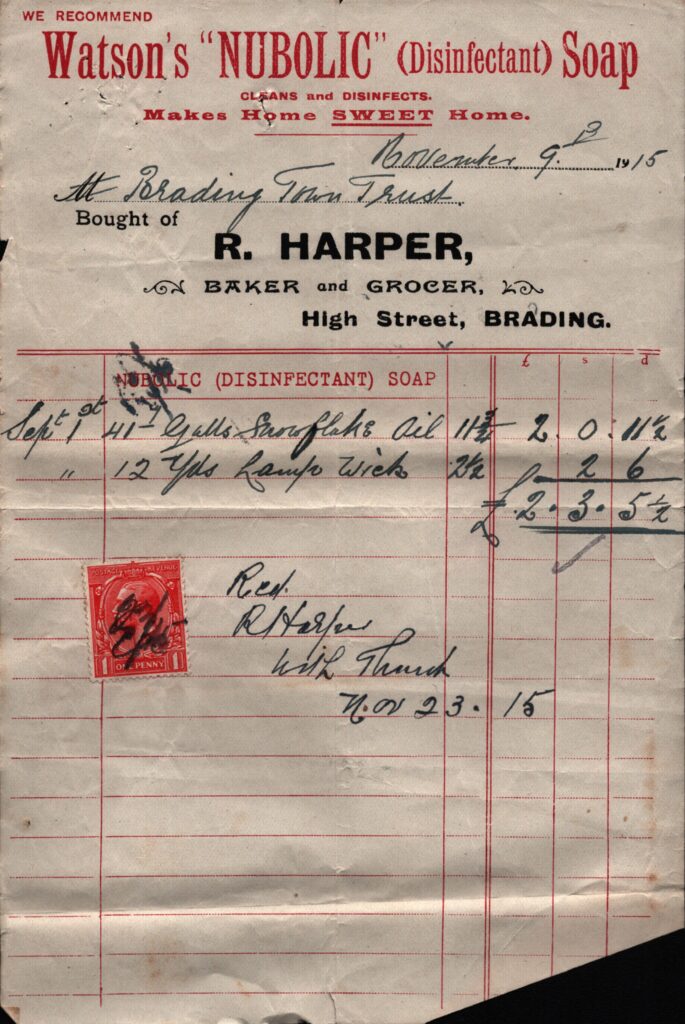 WE RECOMMEND
Watson's "NUBOLIC" (Disinfectant) Soap
CLEANS and DISINFECTS.
Makes Home SWEET Home.
November 9. 1915
Brading Town Trust.
Bought of
R. HARPER,
BAKER and GROCER,
High Street, BRADING.
£ s d
NUBOLIC (DISINFECTANT) SOAP
Sept 1st 41 Galls Snowflake Oil 11¾ 2. 0. 11½
" 12 Yds Lamp Wick 2½ 2 6
£ 2. 3. 5½
POSTAGE REVENUE
Recd.
R Harper
With Thanks
Nov 23. 15
1 ONE PENNY 1